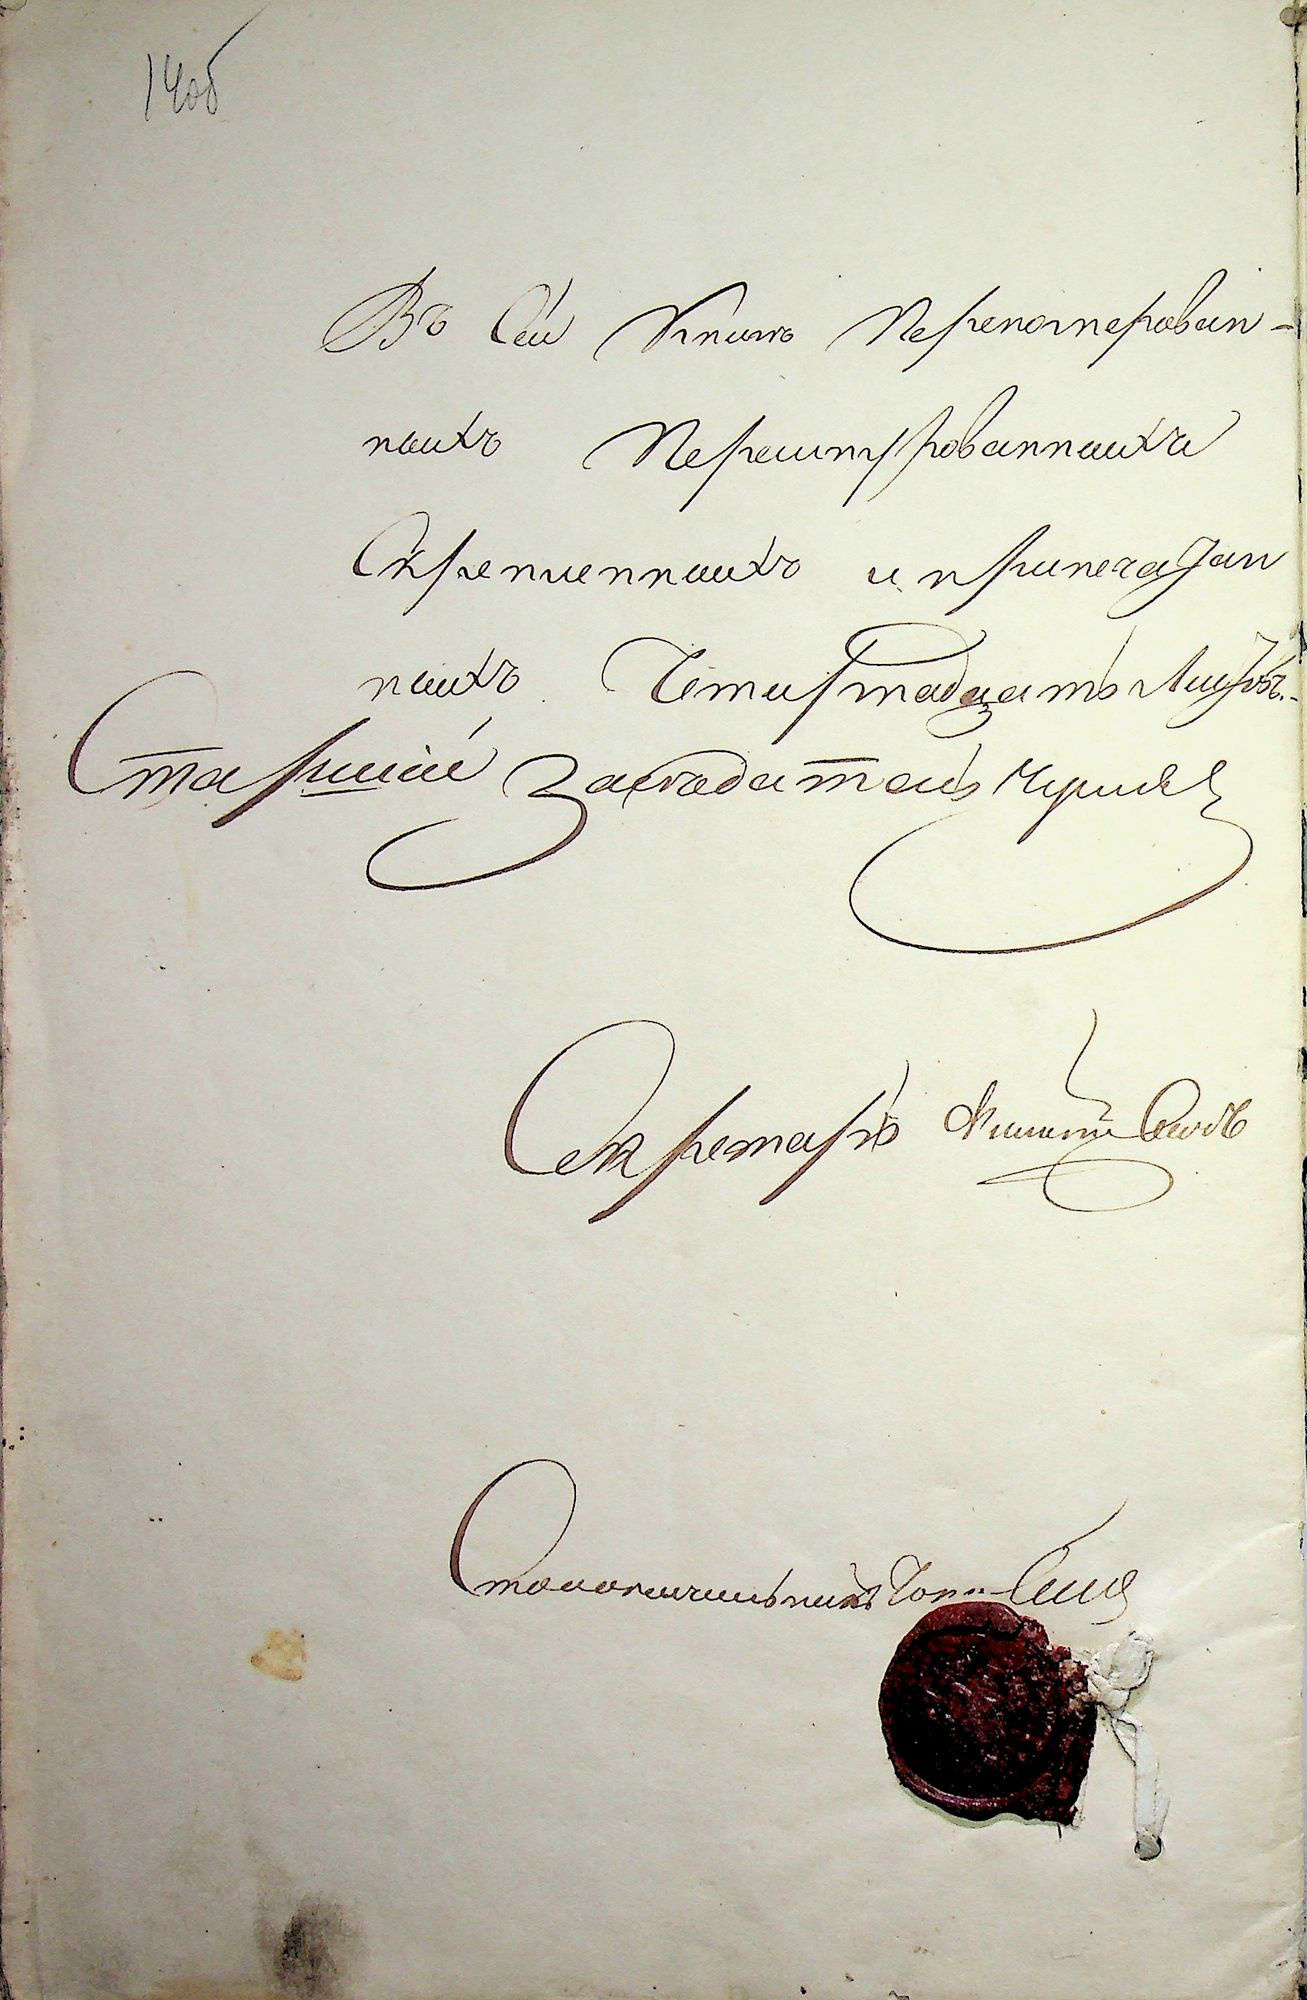 14об
Въ Сей Книгѣ Переномерован-
ныхъ Перешнурованныхъ
Скрепленныхъ и припечатан
ныхъ Четырнадцать Листовъ.
Старшій Заседатель
Секретарь
Столоначальникъ